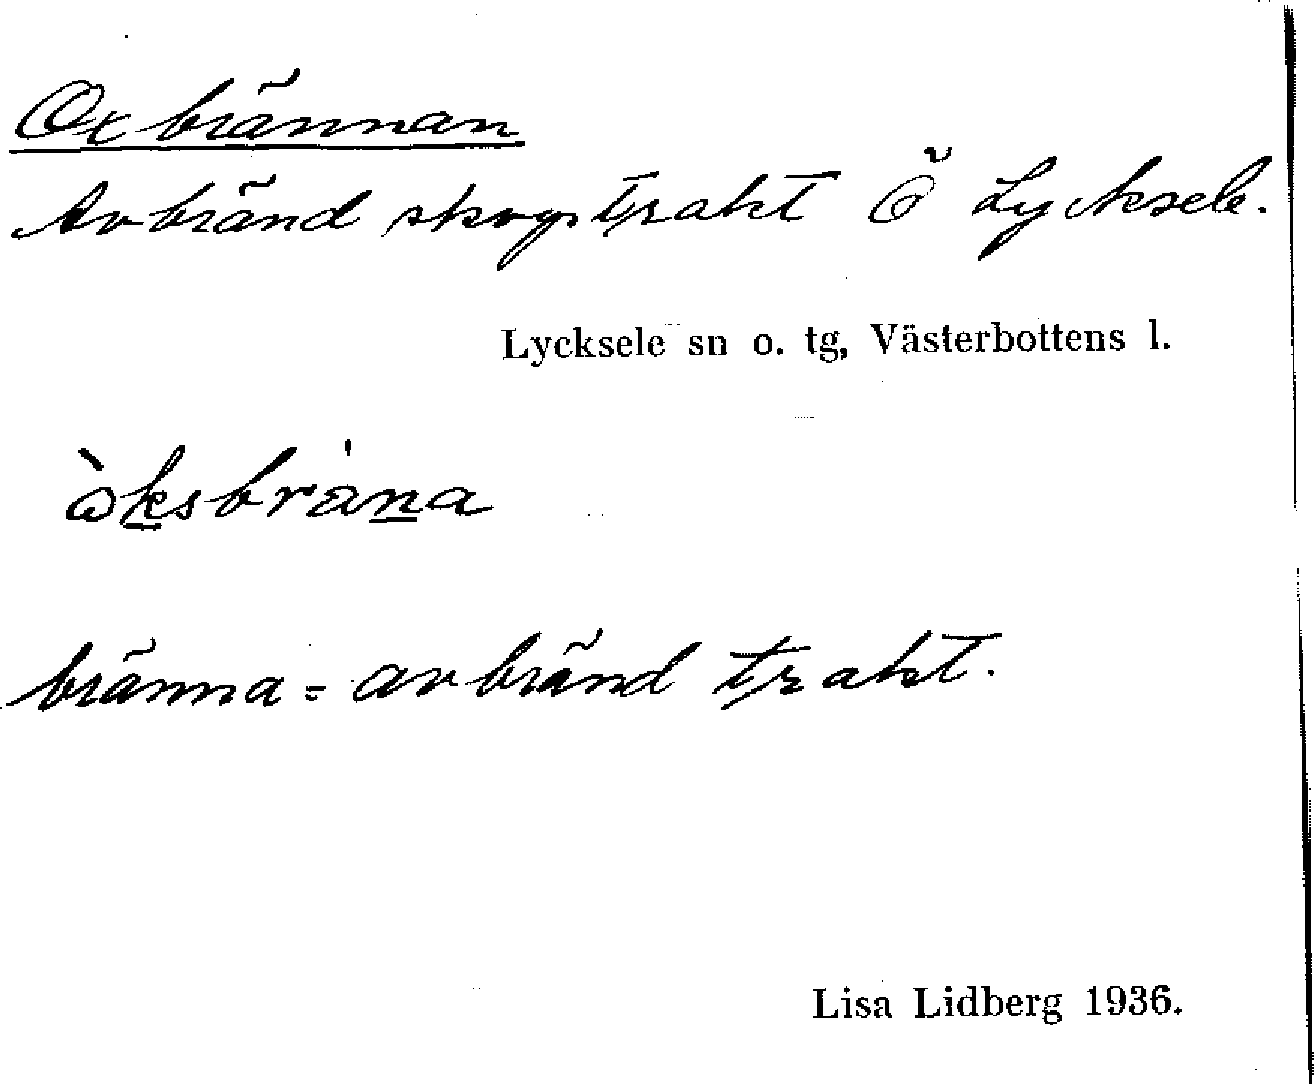 Oxbrännan
Avbränd skogstrakt Ö Lycksele.
Lycksele sn o. tg, Västerbottens l.
ὼksbràna
bränna = avbränd trakt.
Lisa Lidberg 1936.